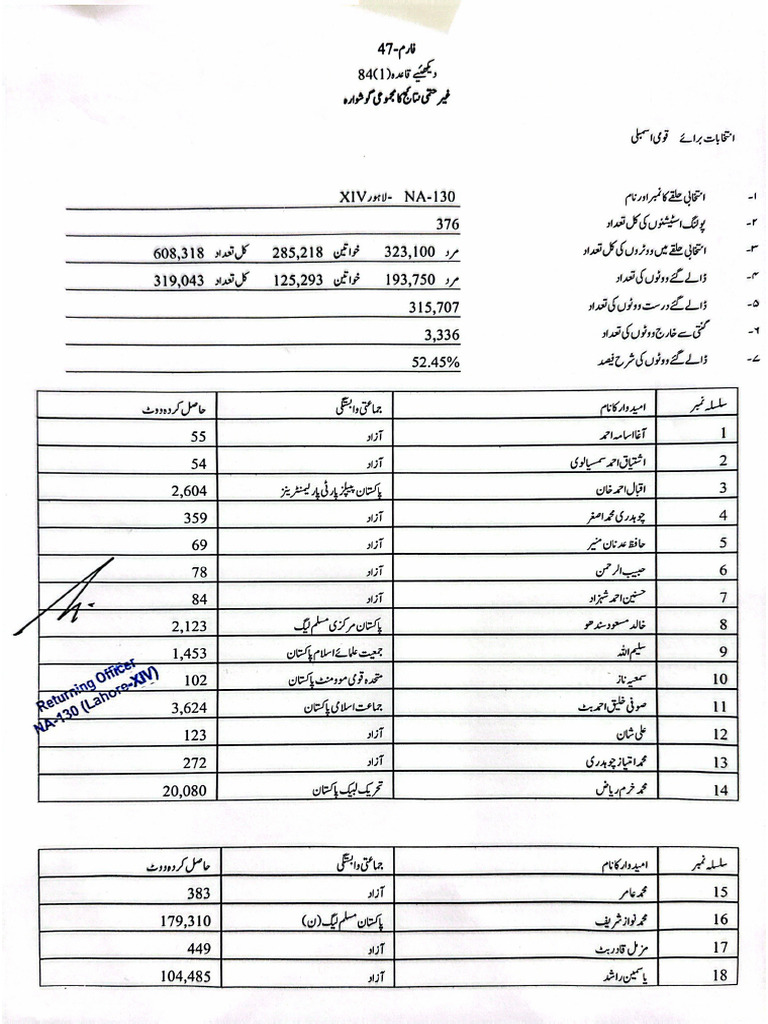 فارم-47
دیکھیے قاعدہ (1)84
غیر حتمی نتائج کا مجموعی گوشوارہ
انتخابات برائے قومی اسمبلی
۱- انتخابی حلقے کا نمبر اور نام NA-130 -لاہور XIV
۲- پولنگ اسٹیشنوں کی کل تعداد 376
۳- انتخابی حلقے میں ووٹروں کی کل تعداد مرد 323,100 خواتین 285,218 کل تعداد 608,318
۴- ڈالے گئے ووٹوں کی تعداد مرد 193,750 خواتین 125,293 کل تعداد 319,043
۵- ڈالے گئے درست ووٹوں کی تعداد 315,707
۶- گنتی سے خارج ووٹوں کی تعداد 3,336
۷- ڈالے گئے ووٹوں کی شرح فیصد 52.45%
سلسلہ نمبر امیدوار کا نام جماعتی وابستگی حاصل کردہ ووٹ
1 آغا اسامہ احمد آزاد 55
2 اشتیاق احمد سمسیالوی آزاد 54
3 اقبال احمد خان پاکستان پیپلز پارٹی پارلیمنٹرینز 2,604
4 چوہدری محمد اصغر آزاد 359
5 حافظ عدنان منیر آزاد 69
6 حبیب الرحمن آزاد 78
7 حسنین احمد شہزاد آزاد 84
8 خالد مسعود سندھو پاکستان مرکزی مسلم لیگ 2,123
9 سلیم اللہ جمعیت علمائے اسلام پاکستان 1,453
10 سمعیہ ناز متحدہ قومی موومنٹ پاکستان 102
11 صوفی خلیق احمد بٹ جماعت اسلامی پاکستان 3,624
12 علی شان آزاد 123
13 محمد امتیاز چوہدری آزاد 272
14 محمد خرم ریاض تحریک لبیک پاکستان 20,080
Returning Officer
NA-130 (Lahore-XIV)
سلسلہ نمبر امیدوار کا نام جماعتی وابستگی حاصل کردہ ووٹ
15 محمد عامر آزاد 383
16 محمد نواز شریف پاکستان مسلم لیگ (ن) 179,310
17 مزمل قادر بٹ آزاد 449
18 یاسمین راشد آزاد 104,485